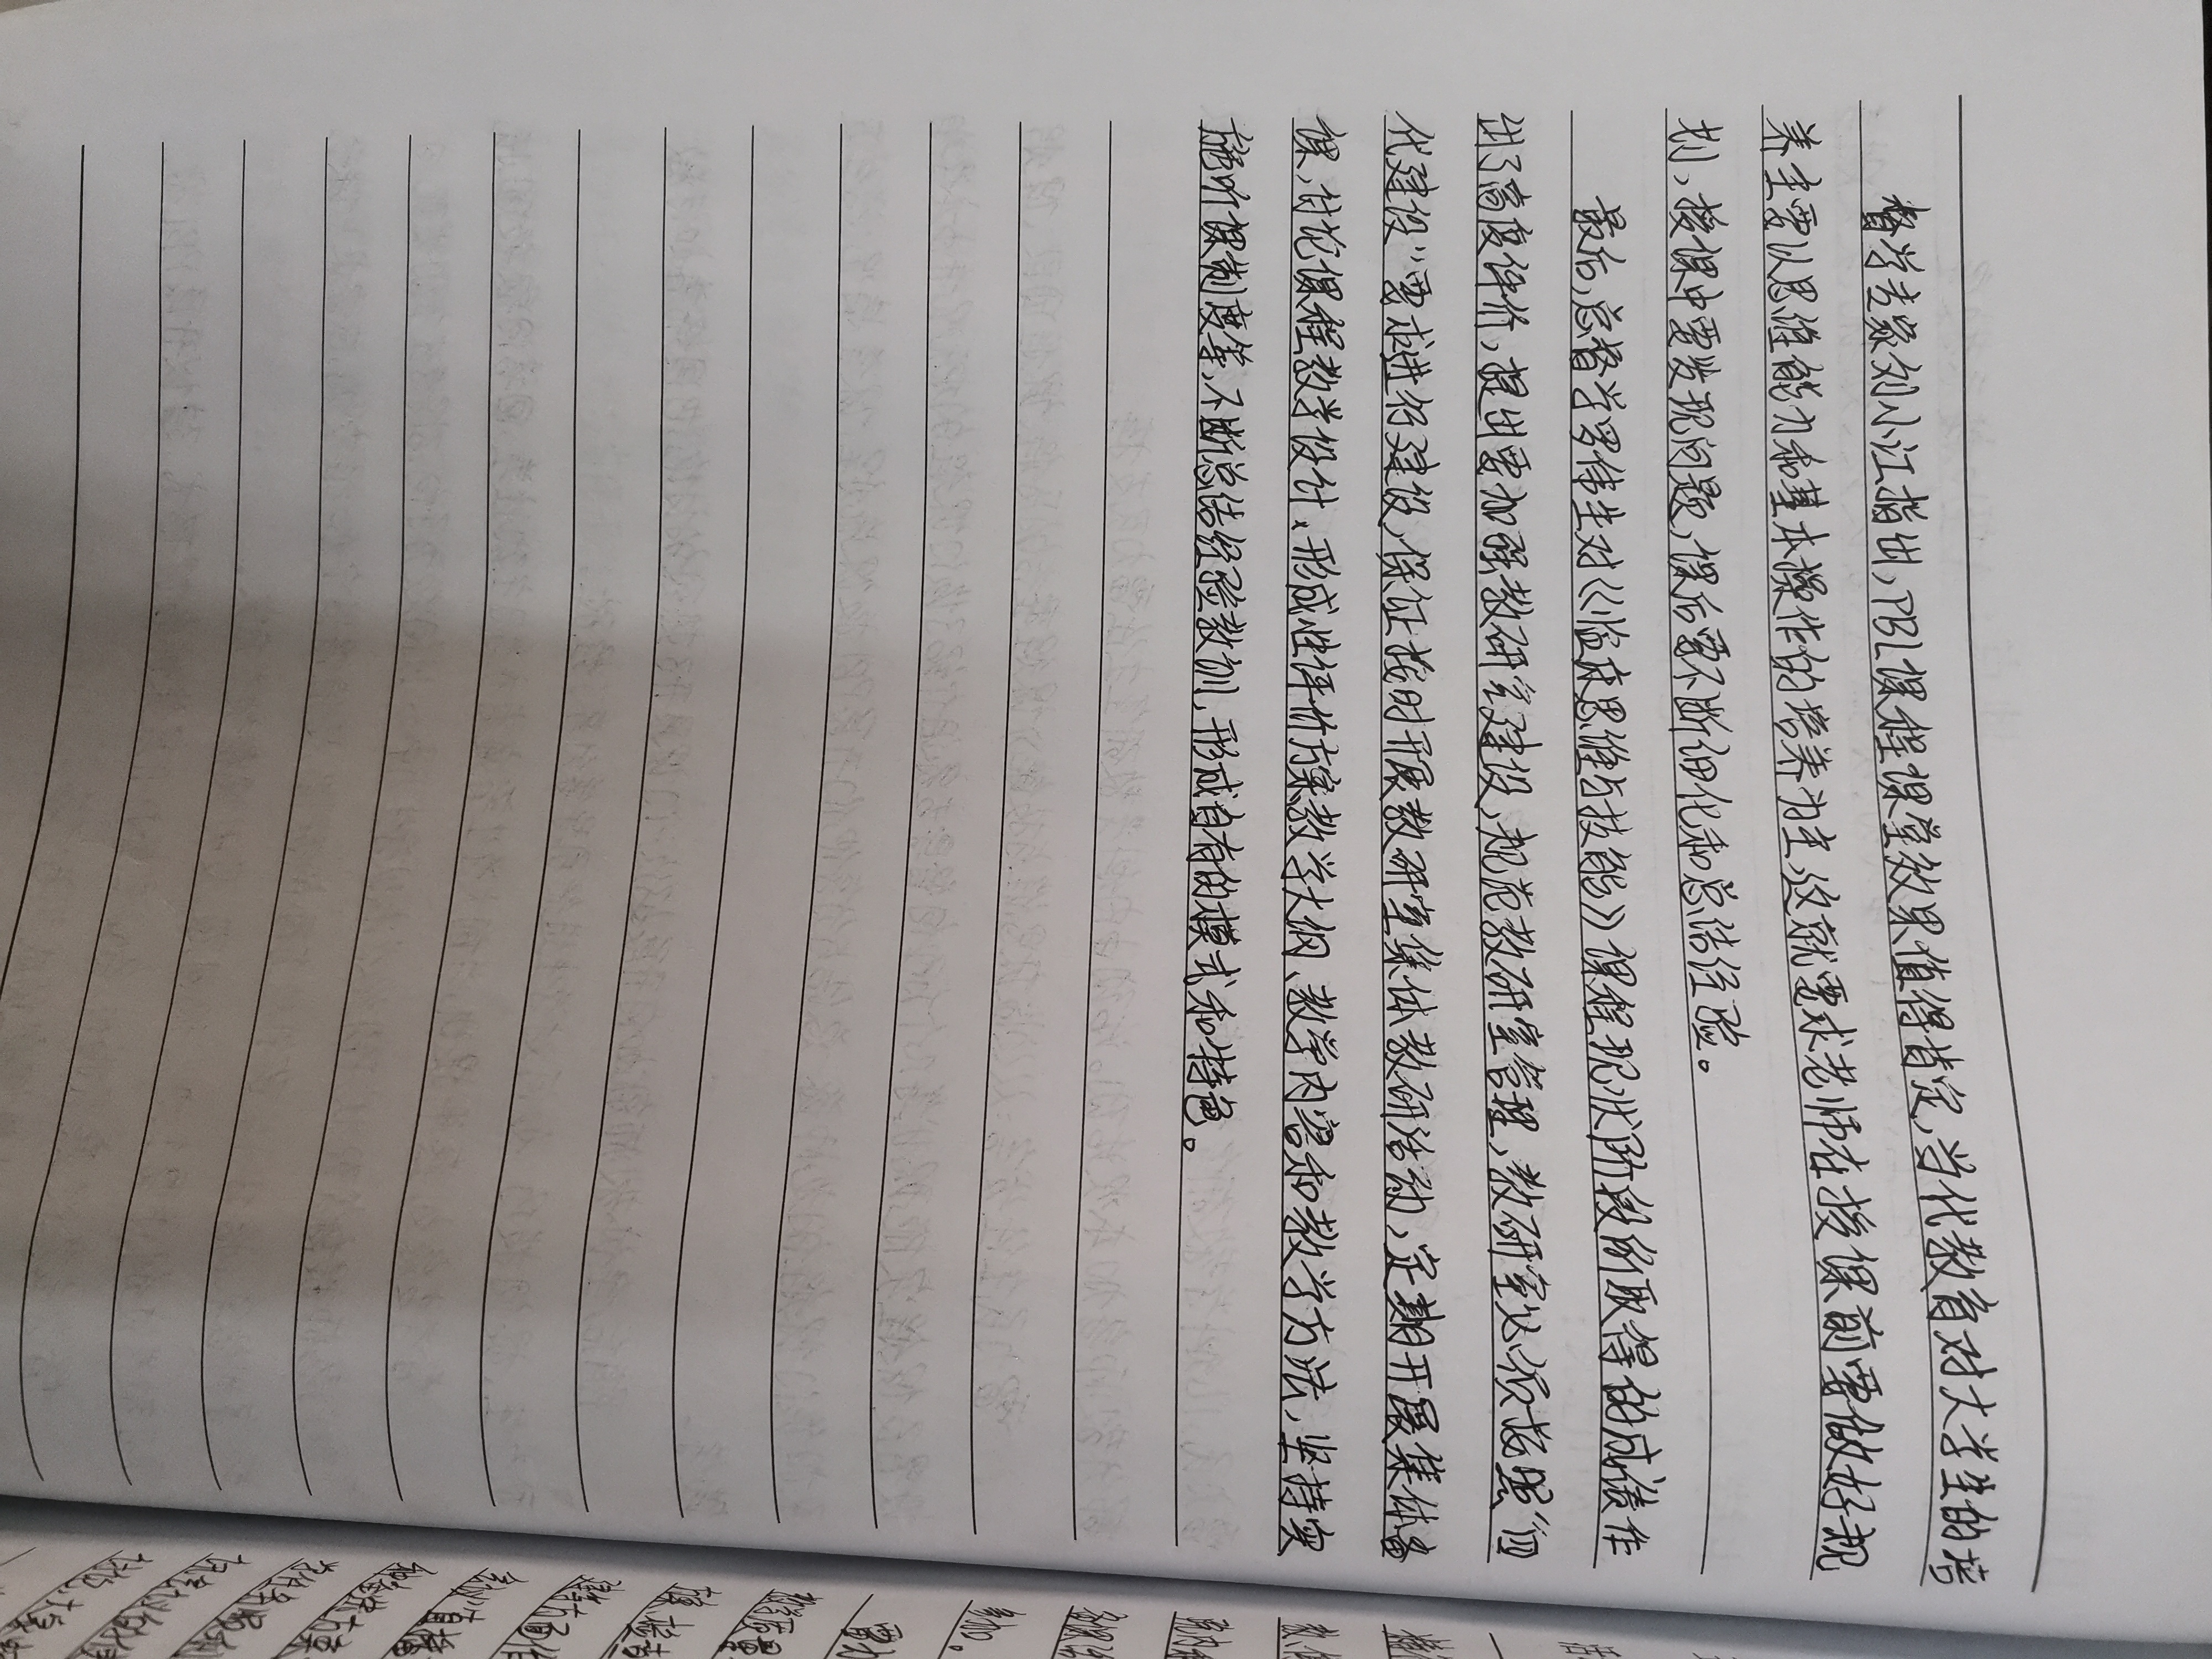 督学专家刘小江指出，PBL课程课堂效果值得肯定，当代教育对大学生的培
养主要以思维能力和基本操作的培养为主，这就要求老师在授课前要做好规
划、授课中要发现问题，课后要不断细化和总结经验。
最后，总督学罗伟生对《临床思维与技能》课程现状阶段的取得的成绩作
出了高度评价，提出要加强教研室建设、规范教研室管理，教研室必须按照“四
代建设”要求进行建设，保证按时开展教研室集体教研活动，定期开展集体备
课，讨论课程教学设计、形成性评价方案教学大纲、教学内容和教学方法，坚持实
施听课制度等，不断总结经验教训，形成自有的模式和特色。